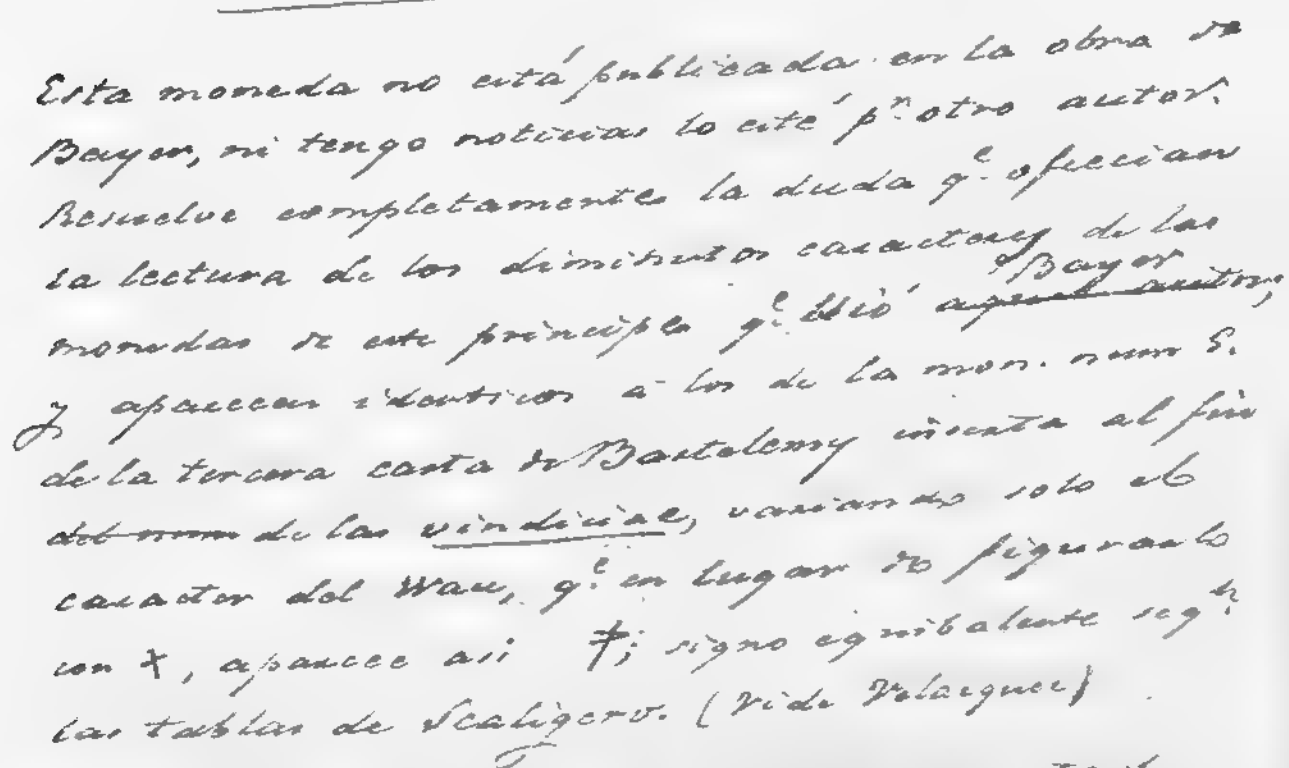 Esta moneda no está publicada en la obra de
Bayer, ni tengo noticias lo cité p.r otro autor.
Resuelve completamente la duda q.e ofrecian
la lectura de los diminutos caracteres de las
monedas de este principe q.e dió Bayer aquel autor;
y aparecen identicos á los de la mon. num 5.
de la tercera carta de Bartelemy inserta al fin
del num de las vindicias, variando solo el
caracter del Wau, q.e en lugar de figurarlo
con X, aparece asi ‡; signo equibalente seg.n
las tablas de Scaligero. (Vide Velazquez)